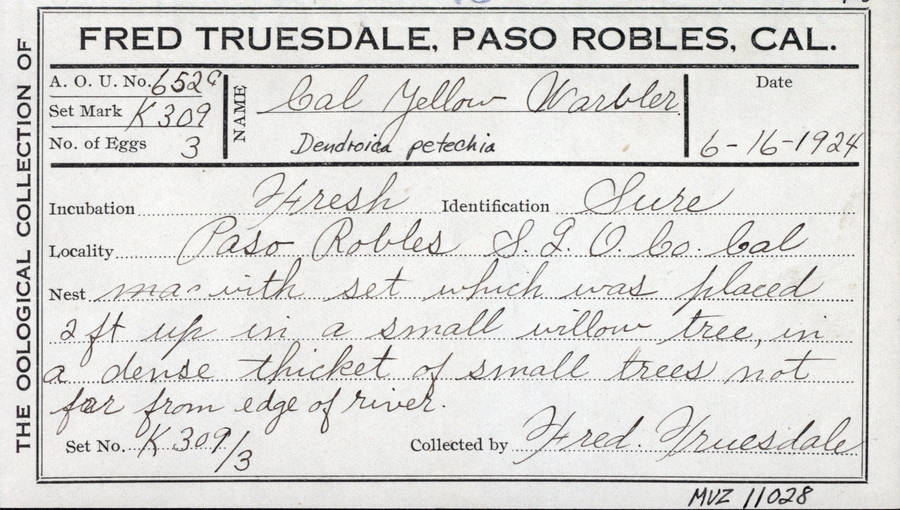 THE OOLOGICAL COLLECTION OF
FRED TRUESDALE, PASO ROBLES, CAL.
A. O. U. No. 652c
Set Mark K 309
No. of Eggs 3
NAME
Cal Yellow Warbler
Dendroica petechia
Date
6-16-1924
Incubation Fresh Identification Sure
Locality Paso Robles S. L. O. Co. Cal
Nest with set which was placed
2 ft up in a small willow tree, in
a dense thicket of small trees not
far from edge of river.
Set No. K 309/3 Collected by Fred. Truesdale
MVZ 11028